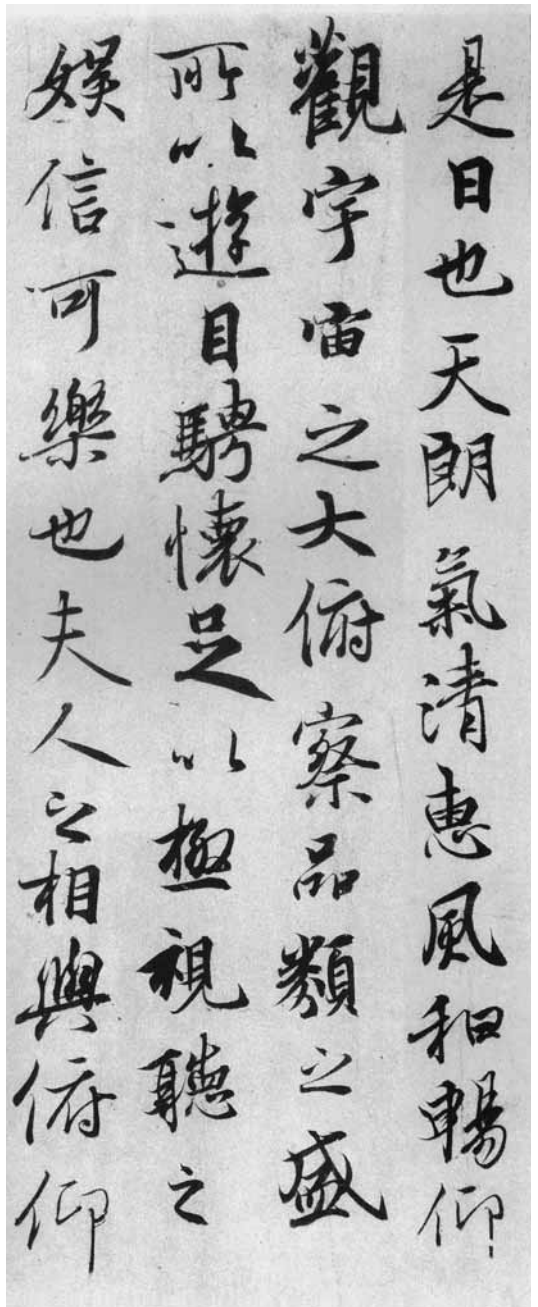 是日也天朗氣清惠風和暢仰
觀宇宙之大俯察品類之盛
所以遊目騁懷足以極視聽之
娛信可樂也夫人之相與俯仰